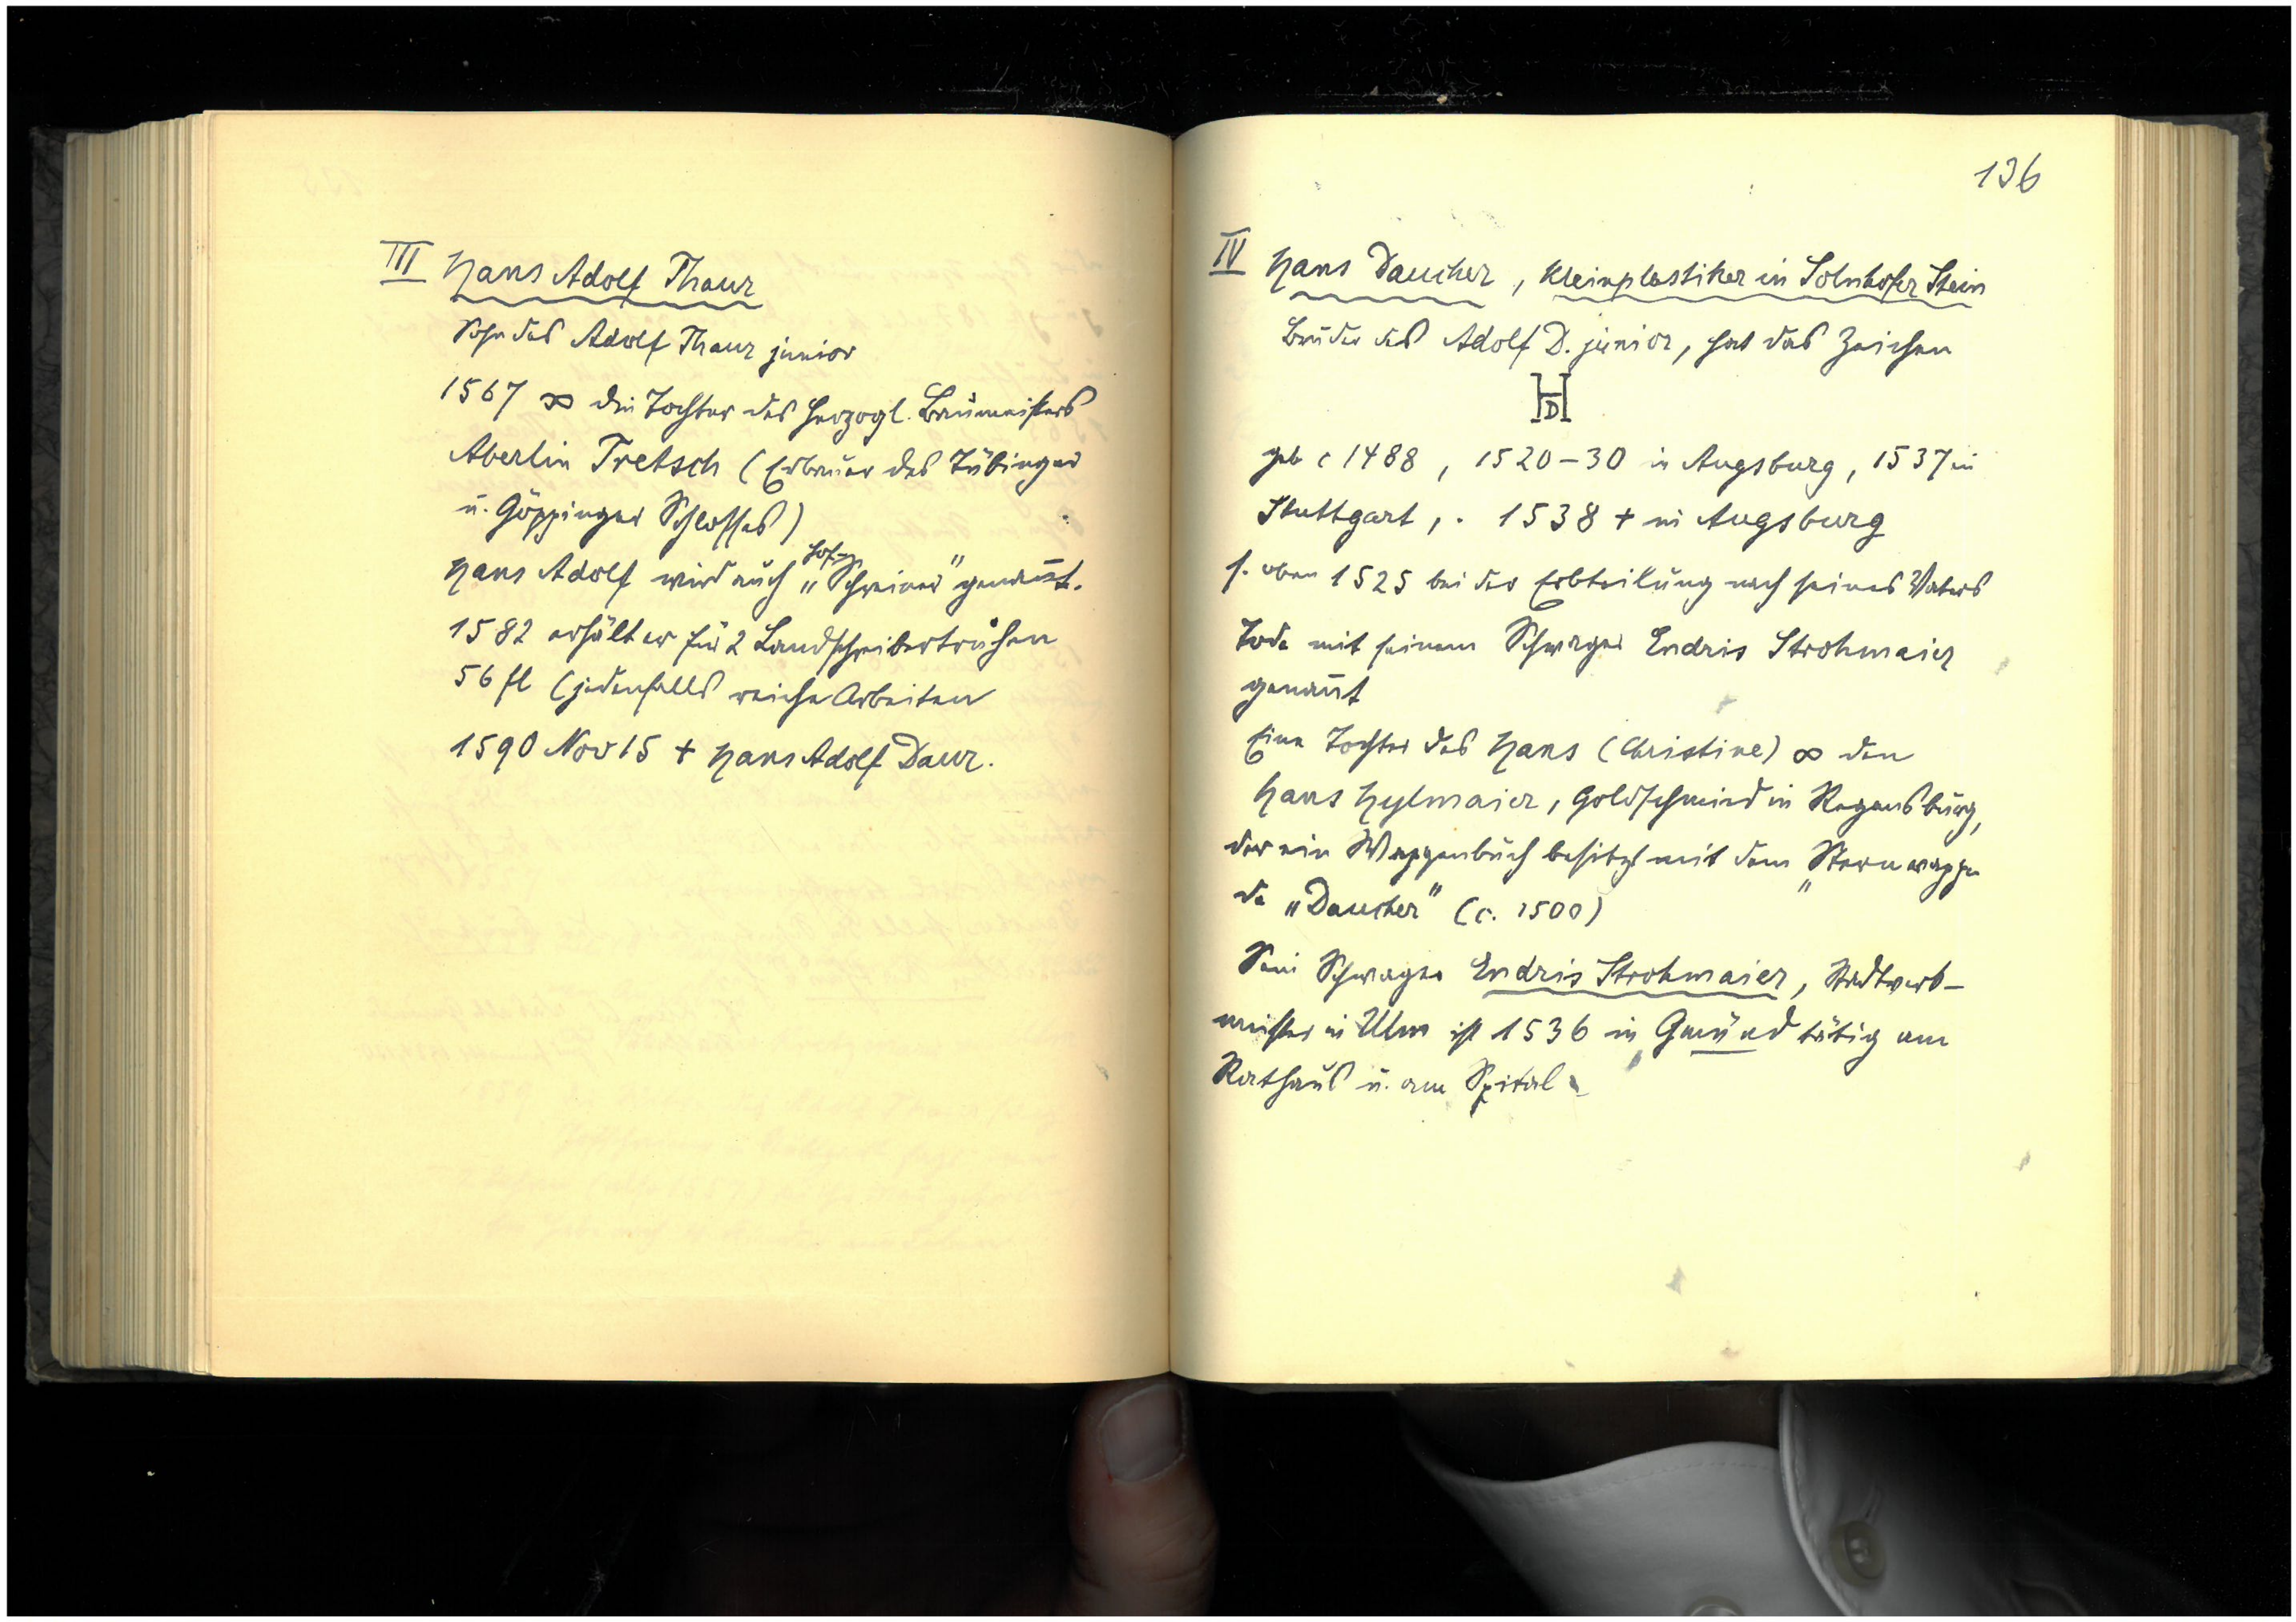 III Hans Adolf Thaur
Sohn des Adolf Thaur junior
1567 ∞ die Tochter des herzogl. Baumeisters
Aberlin Tretsch (Erbauer des Tübinger
u. Göppinger Schlosses)
Hans Adolf wird auch „Hof-Schreiner" genan̄t.
1582 erhält er für 2 Landschreibertruhen
56 fl (jedenfalls reiche Arbeiten
1590 Nov 15 + Hans Adolf Daur.
136
IV Hans Daucher, Kleinplastiker in Solnhofer Stein
Bruder des Adolf D. junior, hat das Zeichen
HD
geb c 1488, 1520–30 in Augsburg, 1537 in
Stuttgart, . 1538 + in Augsburg
s. oben 1525 bei der Erbteilung nach seines Vaters
Tode mit seinem Schwager Endris Strohmaier
genan̄t
Eine Tochter des Hans (Christine) ∞ den
Hans Hylmaier, Goldschmied in Regensburg,
der ein Wappenbuch besitzt mit dem „Sternwappen
de „Daucher" (c. 1500)
Sein Schwager Endris Strohmaier, Stadtwerk-
meister in Ulm ist 1536 in Gmünd tätig am
Rathaus u. am Spital